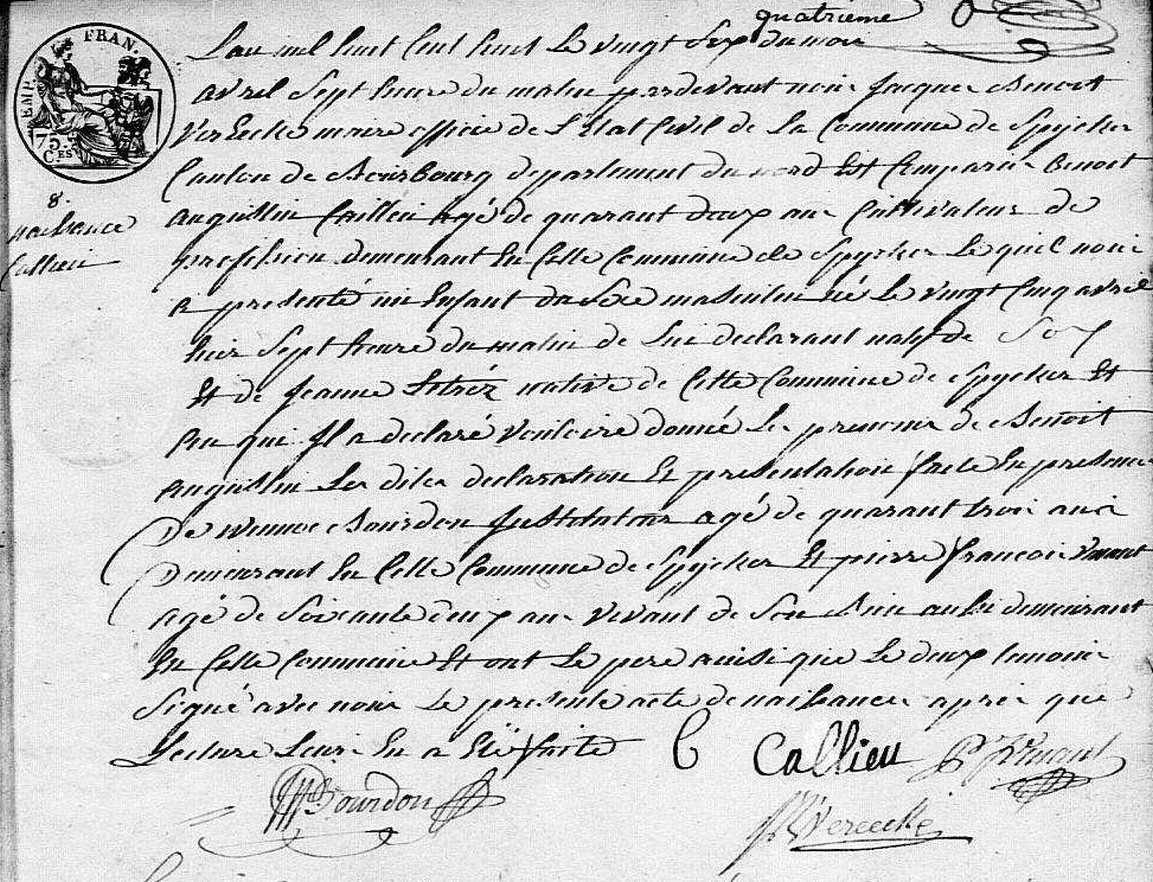 quatrième
L'an mil huit Cent huit Le vingt Six du mois
avril Sept heure du matin pardevant nous Jacque Benoit
Vereecke maire officie de L'Etat Civil de La Commune de Spycker
Canton de Bourbourg departement du nord Est Comparu Benoit
augustin Caillieu agé de quarant deux ans Cultivateur de
profession demeurant En Cette Commune de Spycker Le quel nous
a presenté un Enfant du Sexe masculin né Le vingt Cinq avril
hier Sept heure du matin de Lui declarant natif de
Et de Jeanne native de Cette Commune de Spycker Et
au qui Il a declaré vouloire donné Les prenoms de Benoit
augustin Les dites declaration Et presentation faite En presence
De Winnoc Bourdon Instituteur agé de quarant trois ans
Demeurant En Cette Commune de Spycker Et pierre francois
agé de Soixante deux ans vivant de Son Bien aussi demeurant
En Cette Commune Et ont Le pere ainsi que Le deux temoins
Signé avec nous Le presente acte de naissance apres que
Lecture Leurs En a Eté faite
C Callieu
Bourdon
Vereecke
EMP. FRAN.
75.
CES.
8.
naissance
Callieu